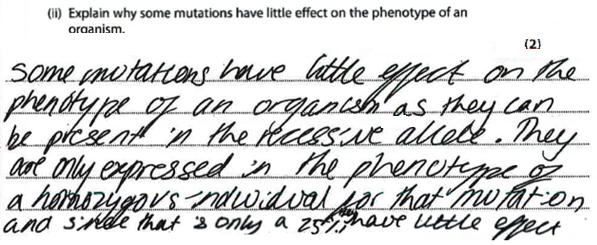 (ii) Explain why some mutations have little effect on the phenotype of an
organism.
(2)
some mutations have little effect on the
phenotype of an organism as they can
be present in the recessive allele. They
are only expressed in the phenotype of
a homozygous individual for that mutation
and since that is only a 25% they have little effect